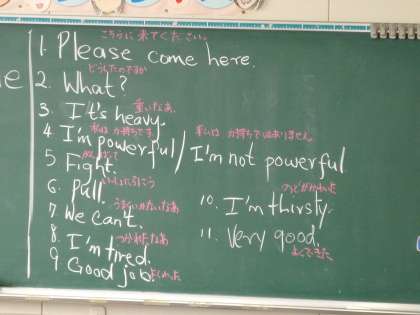 こちらに来てください。
1. Please come here.
どうしたのですか
2. What?
重いなあ
3. It's heavy.
私は力持ちです 私は力持ちではありません。
4 I'm powerful / I'm not powerful.
がんばって
5 Fight.
いっしょに引こう
6. pull.
うまくいかないなあ
7. We can't.
つかれたなあ
8. I'm tired.
9. Good job. よくやった
のどがかわいた
10. I'm thirsty.
11. Very good.
よくできた